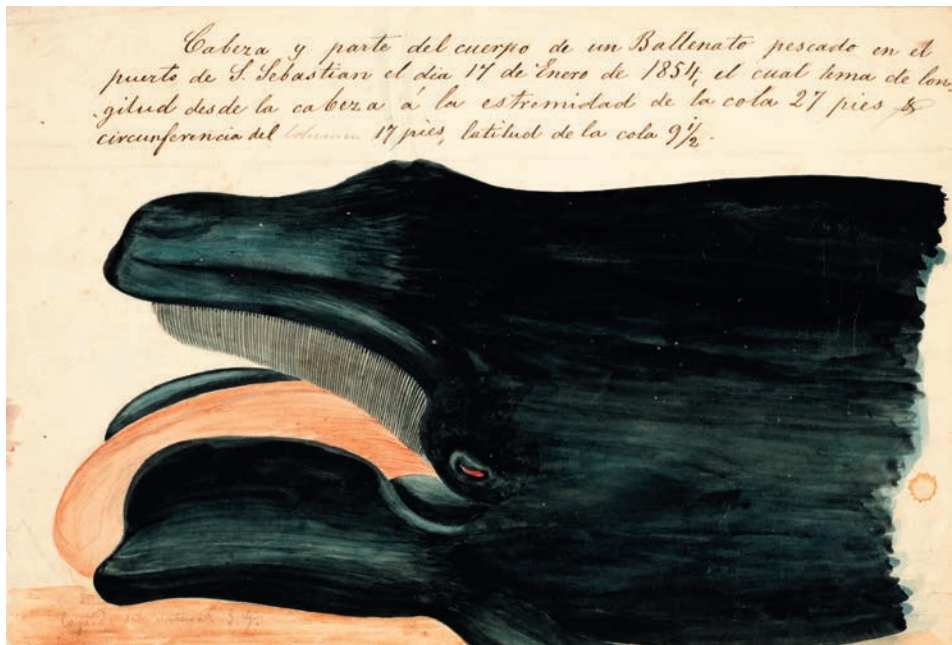 Cabeza y parte del cuerpo de un Ballenato pescado en el
puerto de S. Sebastian el dia 17 de Enero de 1854, el cual tenia de lon-
gitud desde la cabeza á la estremidad de la cola 27 pies
circunferencia del 17 pies, latitud de la cola 9½.
del natural